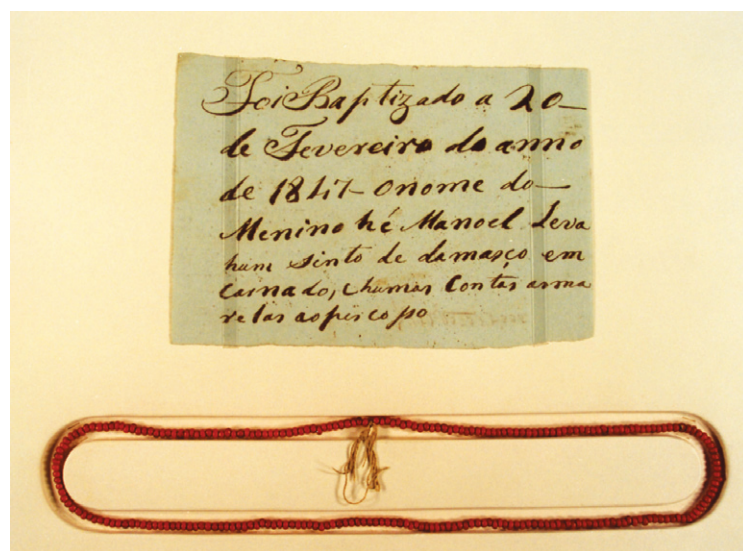 Foi Baptizado a 20
de Fevereiro do anno
de 1847 o nome do
Menino hé Manoel Leva
hum sinto de damasco em
carnado, e humas Contas ama
relas ao pescopo